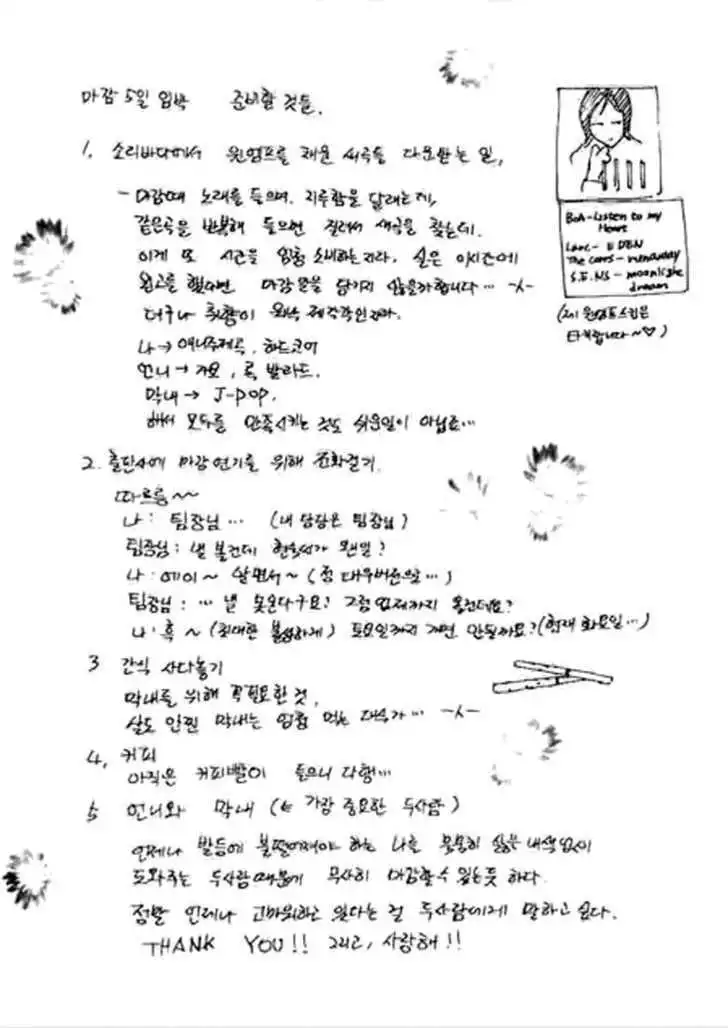 마감 5일 임박 준비할 것들.
1. 소리바다에서 윈앰프를 채울 새곡을 다운받는 일,
- 마감때 노래를 들으며, 지루함을 달래는데,
같은곡을 반복해 들으면 질려서 새곡을 찾는데.
이게 또 시간을 엄청 소비하는지라. 실은 이시간에
원고를 했다면 마감 문을 넘기지 않을까합니다… -_-
더구나 취향이 워낙 제각각인지라.
나 → 애니주제곡, 하드코어
언니 → 가요, 록 발라드.
막내 → J-POP.
해서 모두를 만족시키는 것도 쉬운일이 아닙죠…
BoA - Listen to my
Heart
Larc - EDEN
The cars -
S.E.NS - moonlight
dream
타 합니다~♡)
2. 출판사에 마감 연기를 위해 전화걸기.
따르릉~~
나 : 팀장님… (내 담당은 팀장님)
팀장님 : 낼 볼건데 현숙씨가 웬일?
나 : 에이~ 알면서~ (점 대우버전으로…)
팀장님 : … 낼 못온다구요? 그럼 언제까지 올건데요?
나 : 흑~ (최대한 불쌍하게) 토요일까지 가면 안될까요? (현재 화요일…)
3 간식 사다놓기
막내를 위해 꼭필요한 것,
살도 안찐 막내는 엄청 먹는 대식가… -_-
4. 커피
아직은 커피빨이 들으니 다행…
5 언니와 막내 (← 가장 중요한 두사람)
언제나 발등에 불떨어져야 하는 나를 묵묵히 싫은 내색없이
도와주는 두사람때문에 무사히 마감할수 있는듯 하다.
정말 언제나 고마워하고 있다는 걸 두사람에게 말하고 싶다.
THANK YOU!! 그리고, 사랑해!!